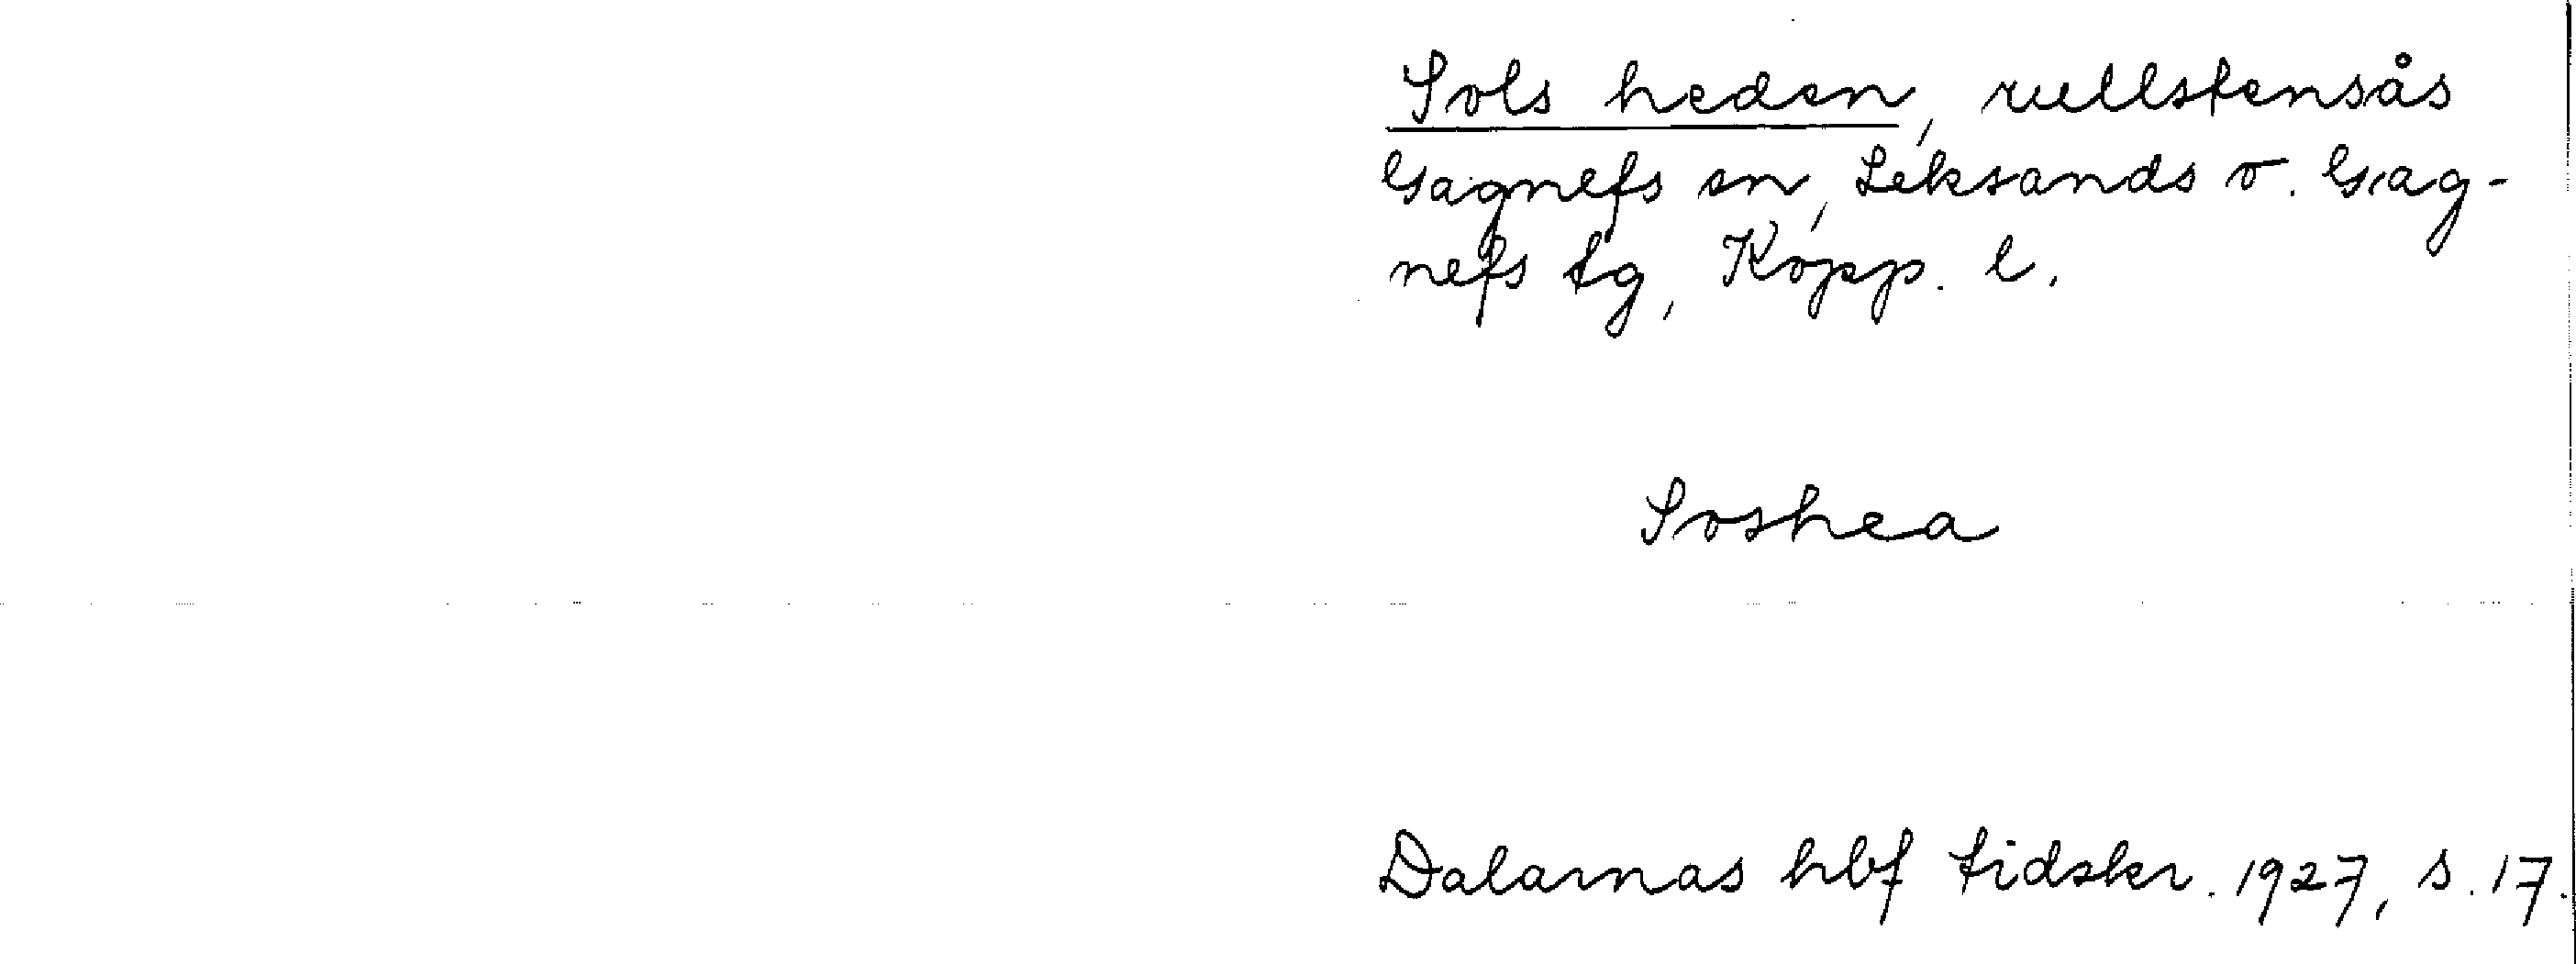 Sols heden, rullstensås
Gagnefs sn, Leksands o. Gag-
nefs tg, Kopp. l.
Soshea
Dalarnas hbf tidskr. 1927, s. 17.